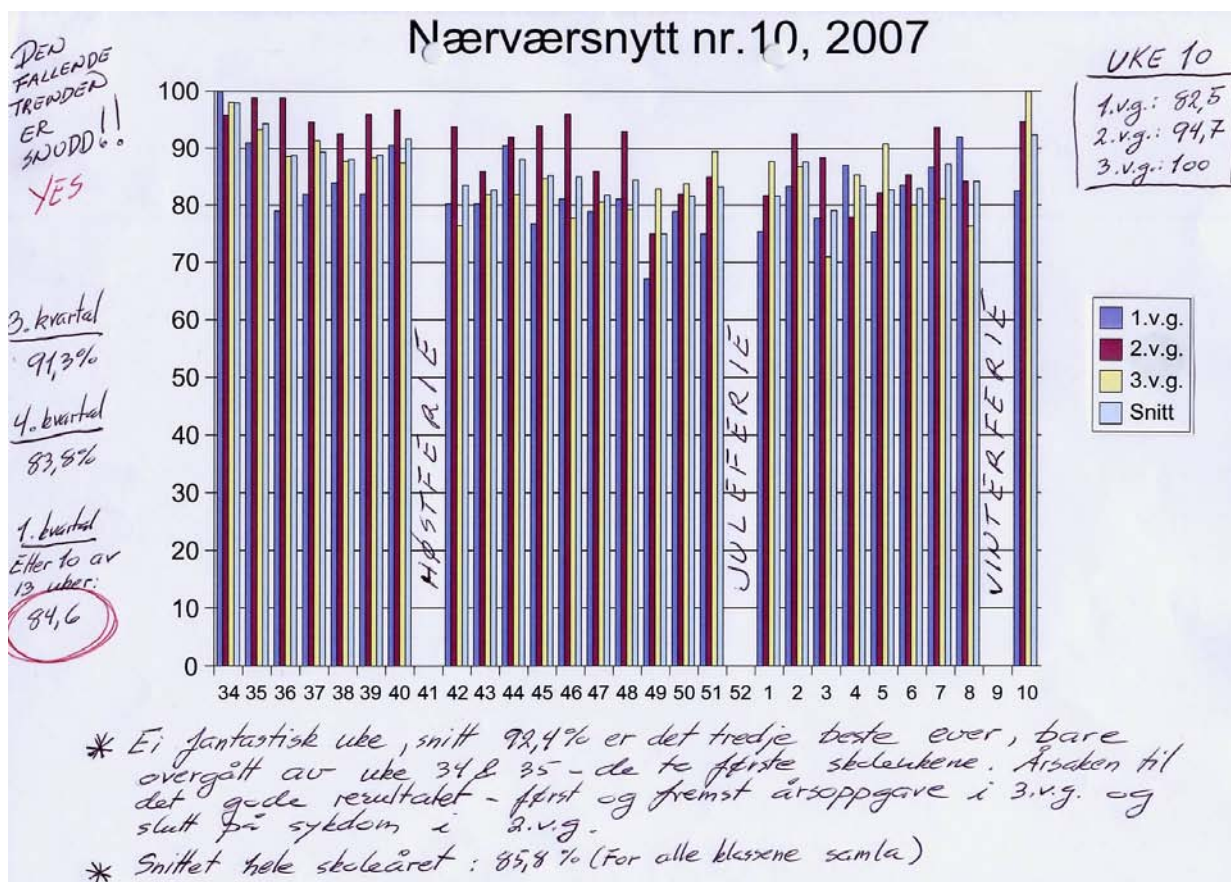 Nærværsnytt nr.10, 2007
DEN
FALLENDE
TRENDEN
ER
SNUDD!!
YES
UKE 10
1.v.g.: 82,5
2.v.g.: 94,7
3.v.g.: 100
3. kvartal
91,3%
4. kvartal
83,8%
1. kvartal
Etter 10 av
13 uker:
84,6
100
90
80
70
60
50
40
30
20
10
0
HØSTFERIE
JULEFERIE
VINTERFERIE
1.v.g.
2.v.g.
3.v.g.
Snitt
34 35 36 37 38 39 40 41 42 43 44 45 46 47 48 49 50 51 52 1 2 3 4 5 6 7 8 9 10
* Ei fantastisk uke, snitt 92,4% er det tredje beste ever, bare
overgått av uke 34 & 35 - de to første skoleukene. Årsaken til
det gode resultatet - først og fremst årsoppgave i 3.v.g. og
slutt på sykdom i 2.v.g.
* Snittet hele skoleåret: 85,8% (For alle klassene samla)